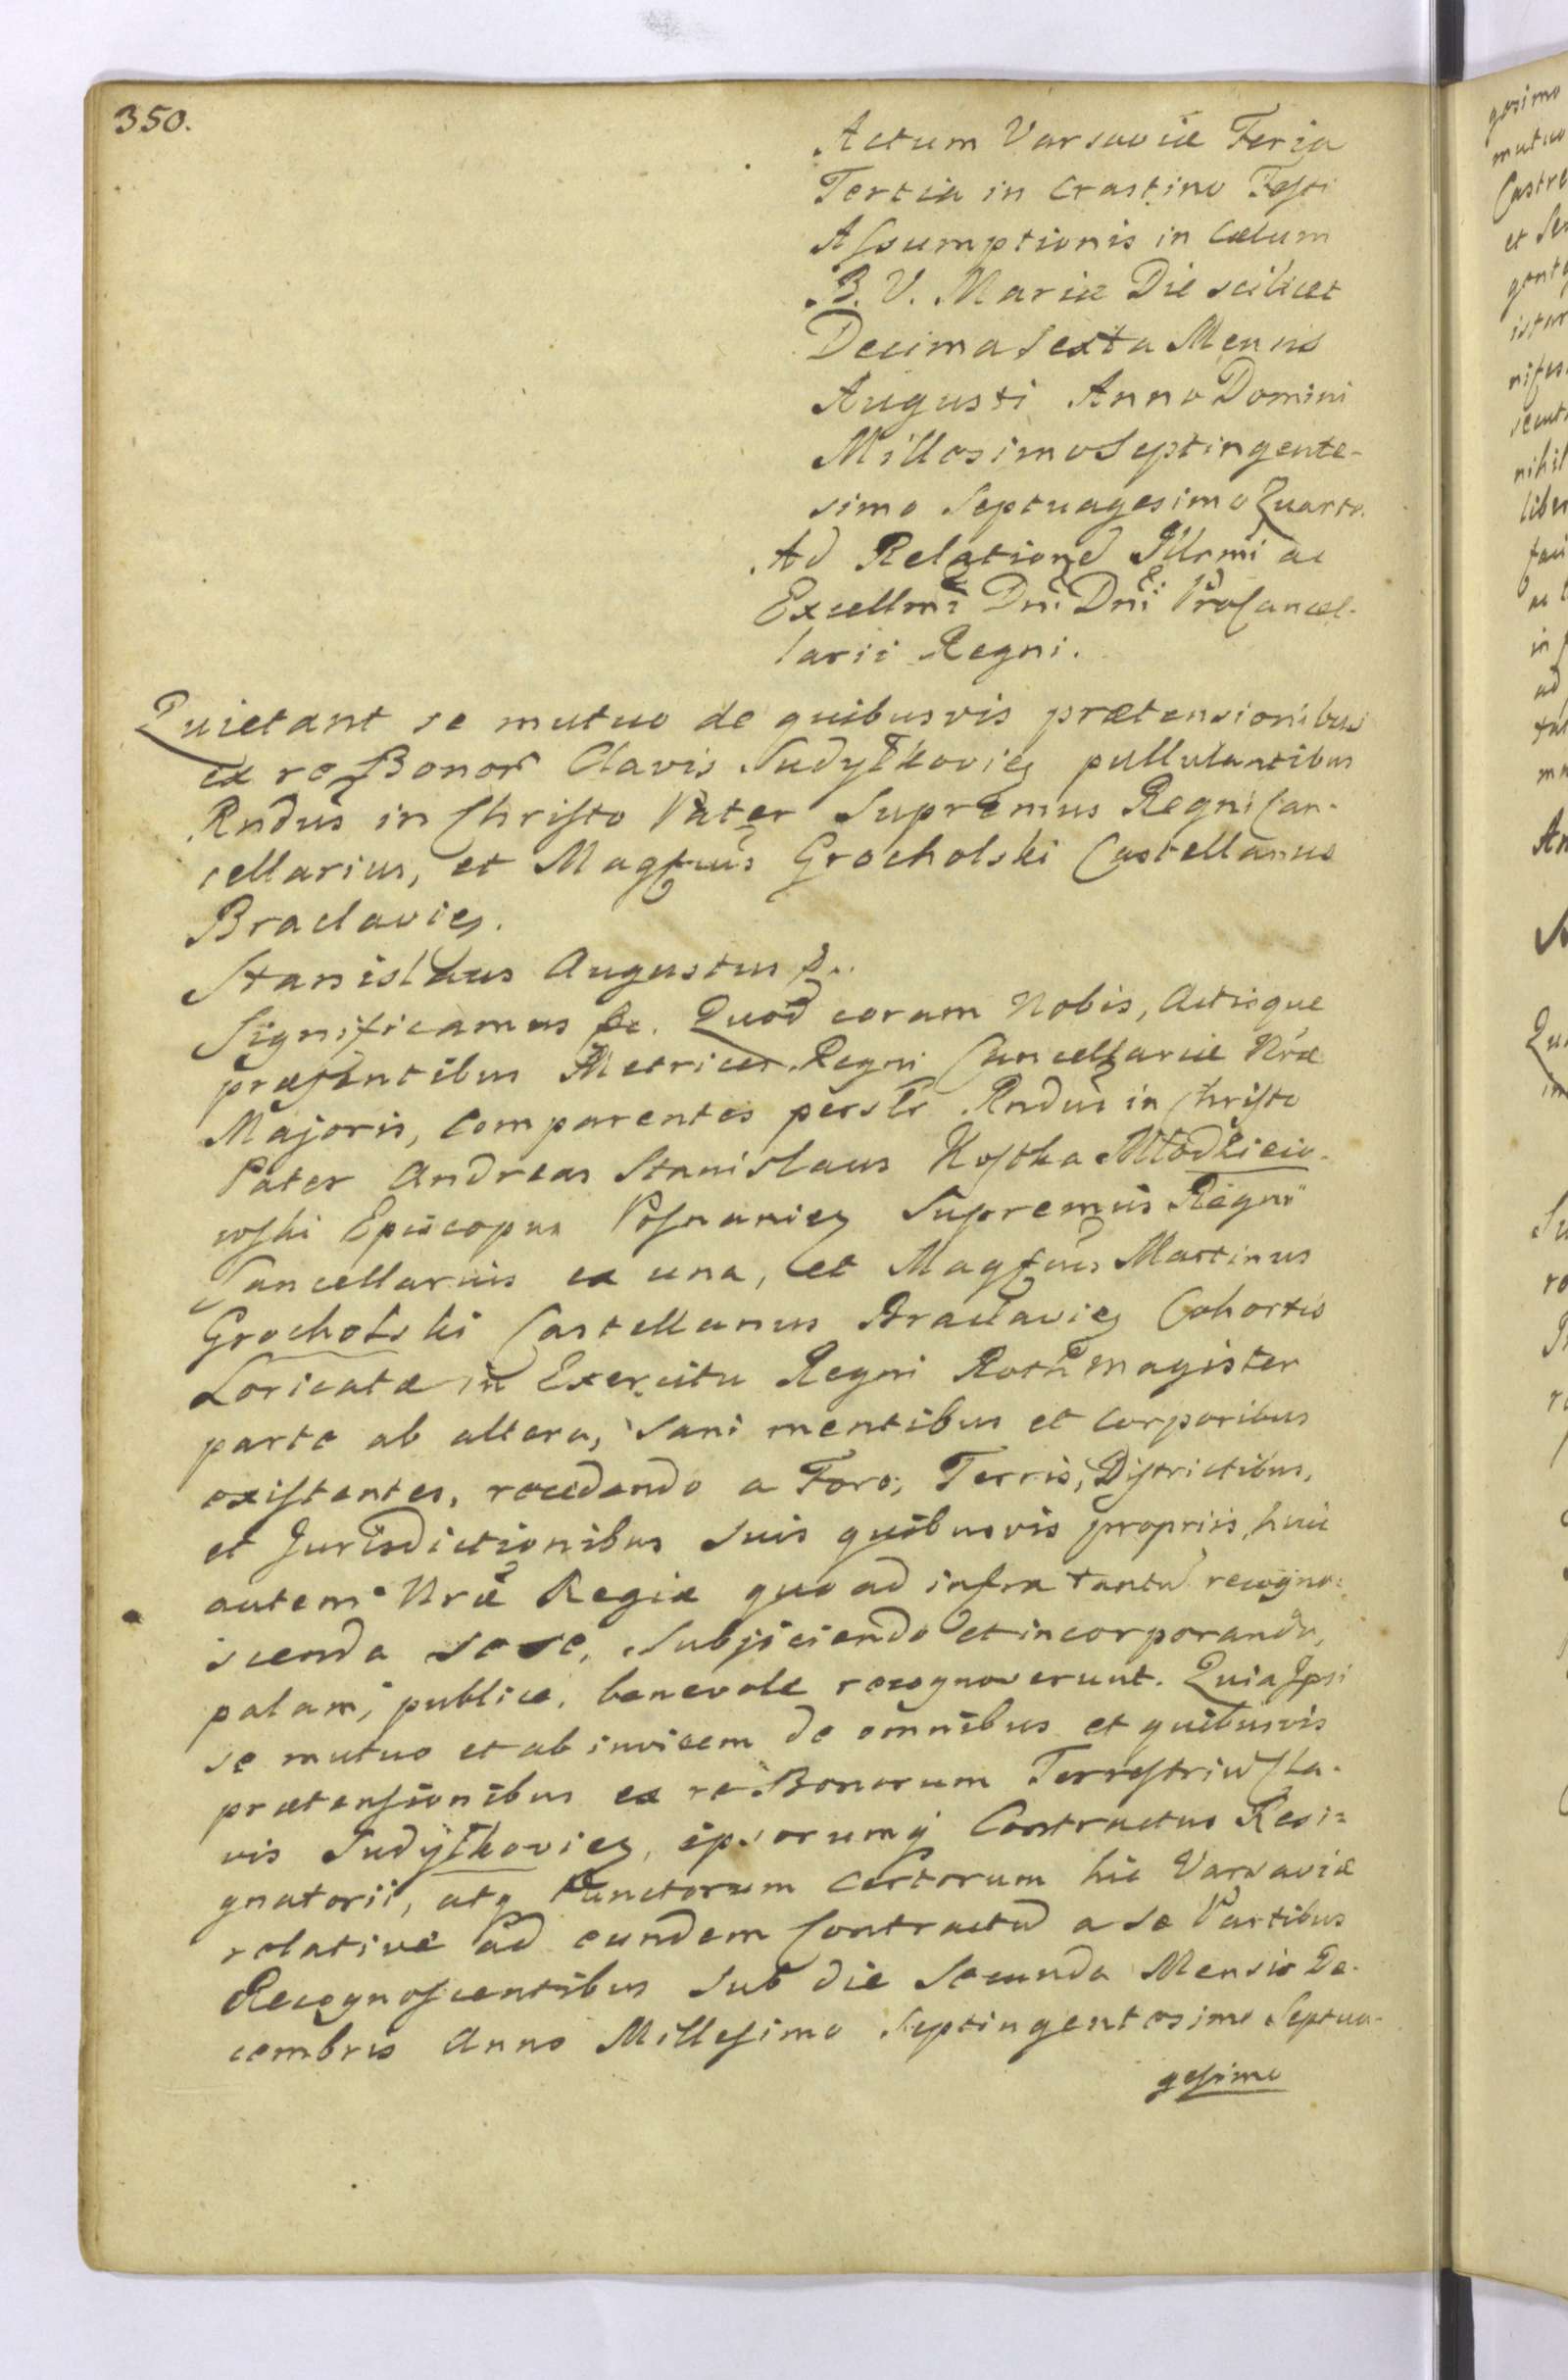 350.
Actum Varsaviæ Feria
Tertia in Crastino Festi
Assumptionis in Cælum
B. V. Mariæ Die scilicet
Decima Sexta Mensis
Augusti Anno Domini
Millesimo Septingente-
simo Septuagesimo Quarto.
Ad Relatione Illrmi ac
Excellmi Dni Dni ProCancel-
larii Regni.
Quietant se mutuo de quibusvis prætensionibus
ex re Bonor Clavis Sudyłkovien pullulantibus
Rndus in Christo Pater Supremus Regni Can-
cellarius, et Magfcus Grocholski Castellanus
Braclavien.
Stanislaus Augustus &.
Significamus &c. Quod coram Nobis, Actisque
præsentibus Metrices Regni Cancellariæ Nræ
Majoris, Comparentes persłr Rndus in Christo
Pater Andreas Stanislaus Kostka Młodzieio-
wski Episcopus Posnanien Supremus Regni
Cancellarius ex una, et Magfcus Martinus
Grocholski Castellanus Braclavien Cohortis
Loricatæ in Exercitu Regni Rothmagister
parte ab altera, Sani mentibus et Corporibus
existentes, recedendo a Foro, Terris, Districtibus,
et Jurisdictionibus Suis quibusvis propriis, huic
autem Nræ Regiæ quo ad infra tantu recogno-
scenda sese, Subjiciendo et incorporando,
palam, publice, benevole recognoverunt. Quia Ipsi
se mutuo et ab invicem de omnibus et quibusvis
prætensionibus ex re Bonorum Terrestriu Cla-
vis Sudyłkovien, ipsorumq Contractus Resi-
gnatorii, atq Punctorum Certorum hic Varsaviæ
relative ad eundem Contractu a se Partibus
Recognoscentibus Sub die Secunda Mensis De-
cembris Anno Millesimo Septingentesimo Septua-
gesimo